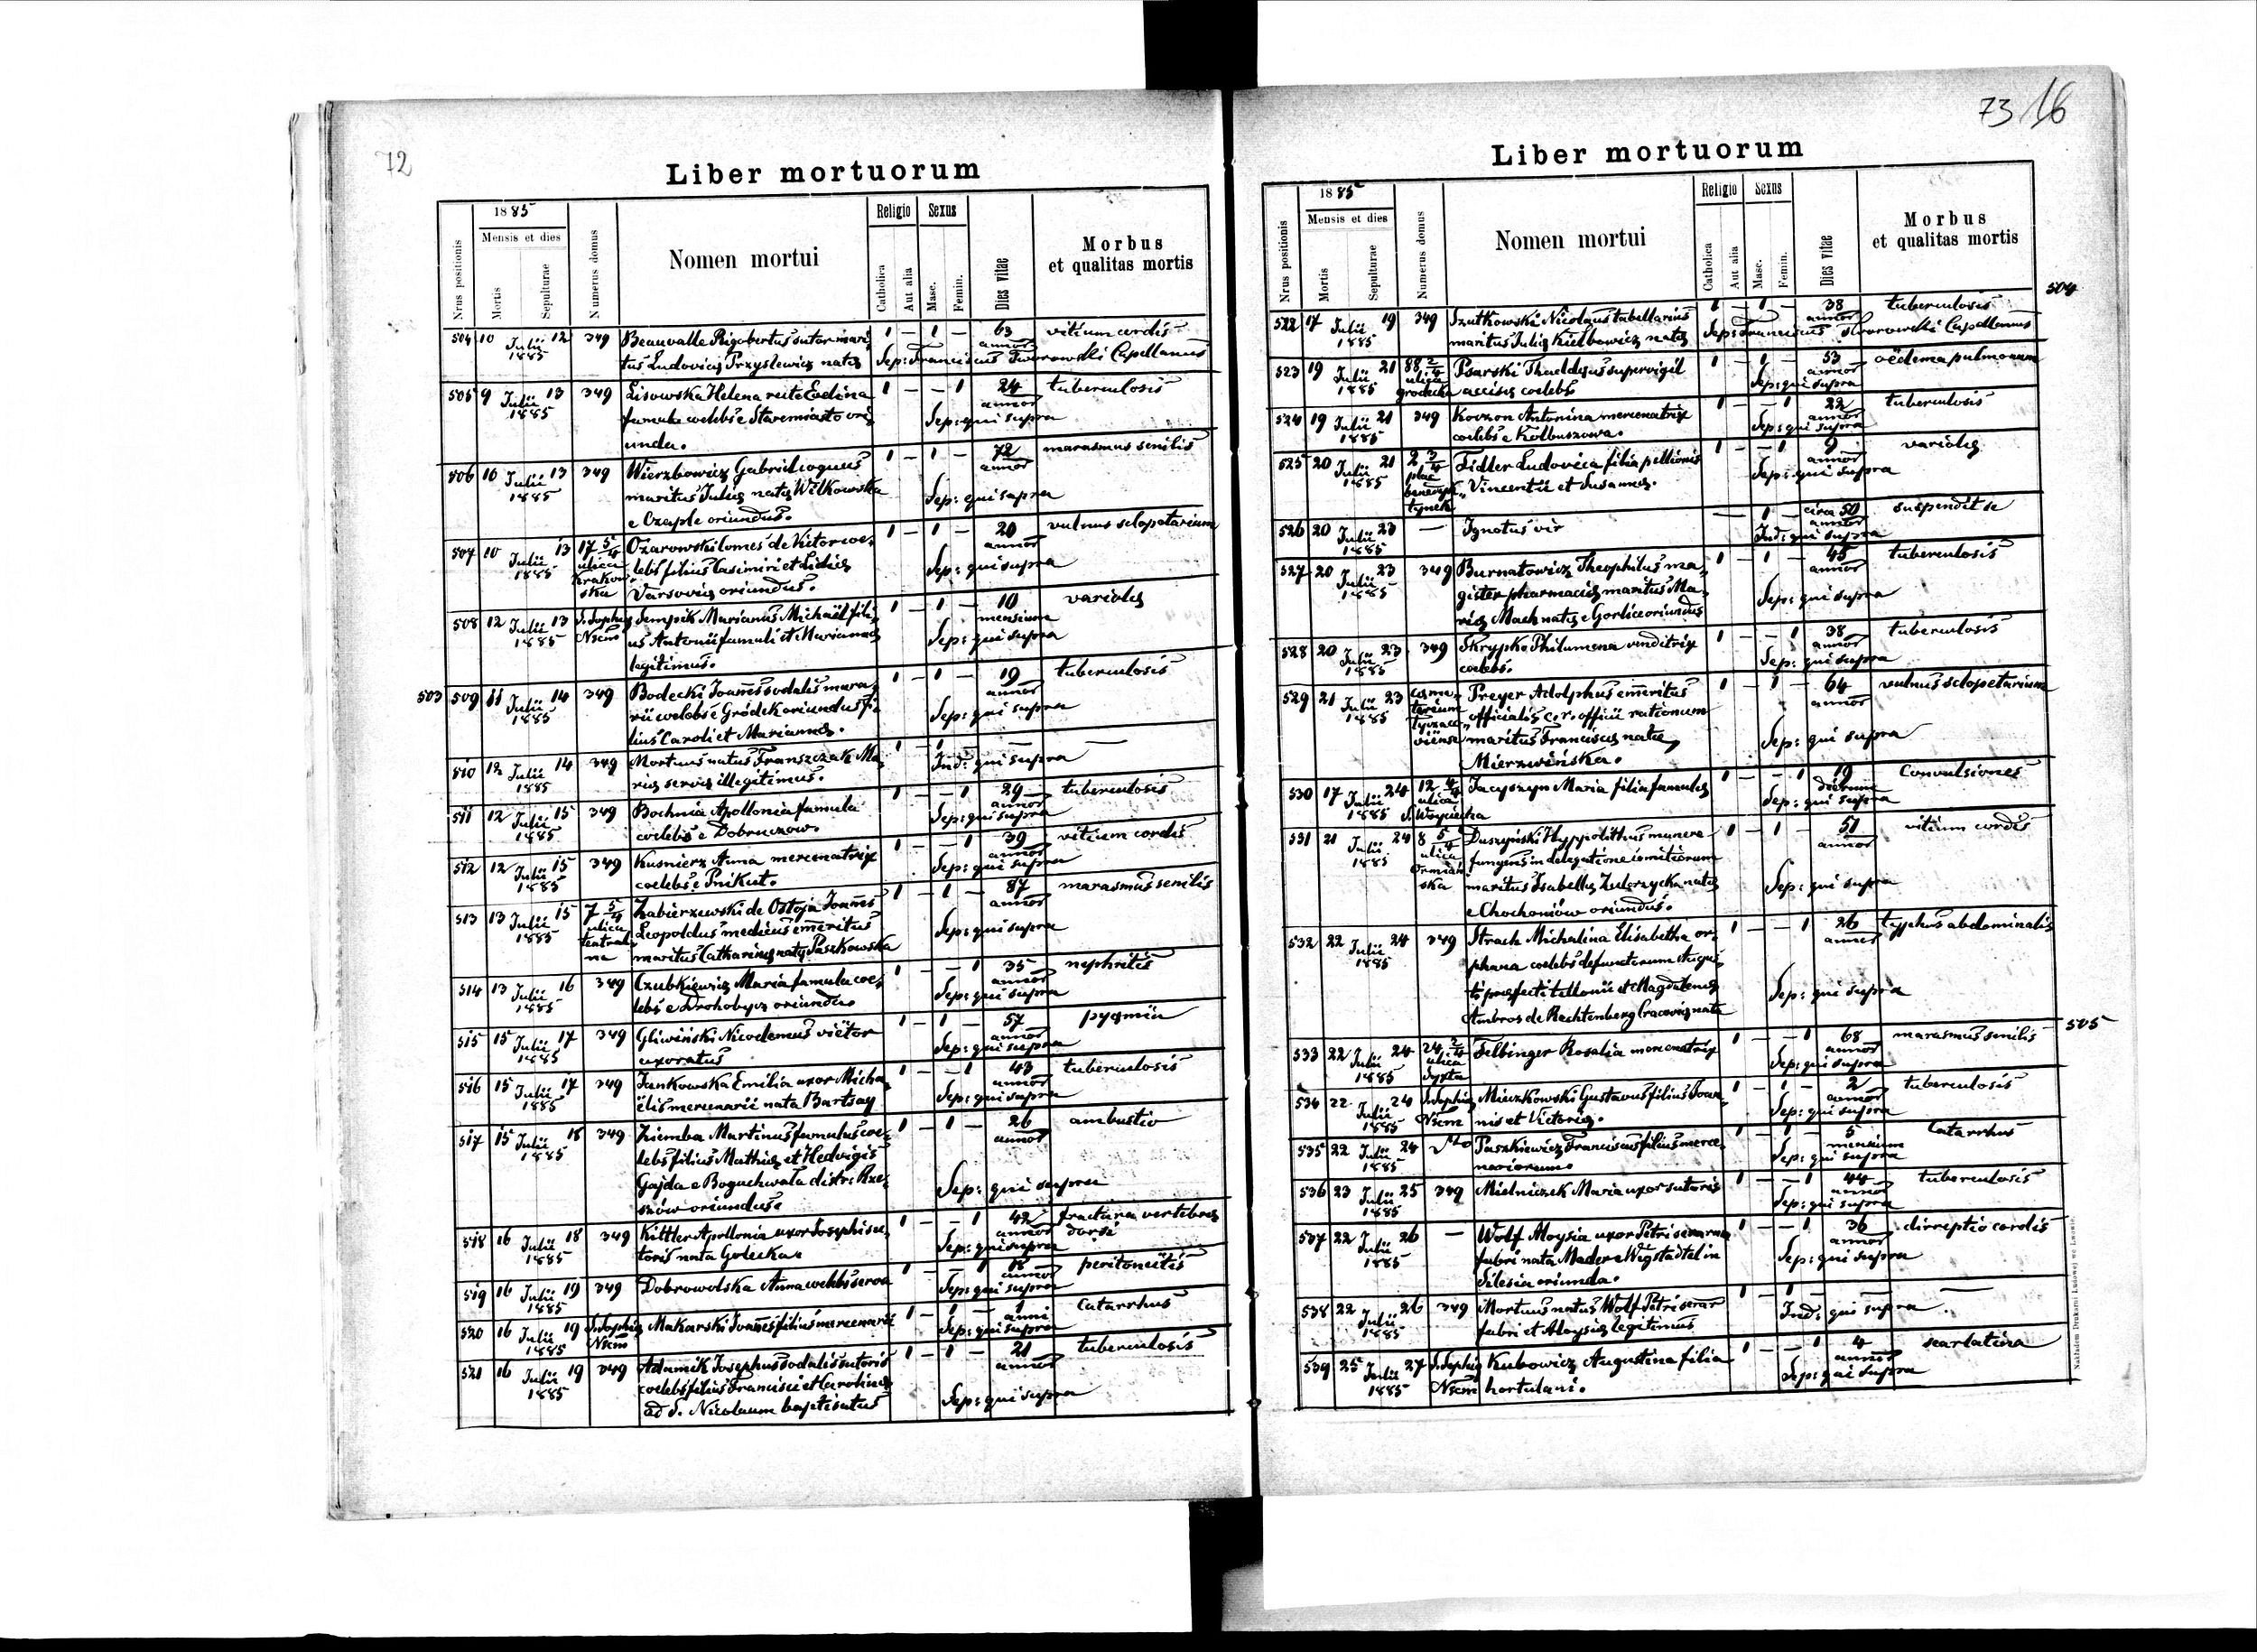 72
Liber mortuorum
1885
Nrus positionis
Mensis et dies
Mortis
Sepulturae
Numerus domus
Nomen mortui
Religio
Catholica
Aut alia
Sexus
Masc.
Femin.
Dies vitae
Morbus
et qualitas mortis
504 10 Julii 1885 12 349 Beauvalle Rigobertus sutor mari- 1 – 1 – 63 annor vitium cordis
tus Ludovicæ Przyslewicz natæ Sep: Franciscus Tworowski Capellanus
505 9 Julii 1885 13 349 Lisowska Helena recte Ewelina 1 – – 1 24 annor tuberculosis
famula coelebs e Staremiasto ori- Sep: qui supra
unda.
506 10 Julii 1885 13 349 Wierzbowicz Gabriel coquus 1 – 1 – 72 annor marasmus senilis
maritus Juliæ natæ Wilkowska Sep: qui supra
e Czaple oriundus.
507 10 Julii 1885 13 17 5/4 ulica Krakowska Ożarowski Comes de Victor coe- 1 – 1 – 20 annor vulnus sclopetarium
lebs filius Casimiri et Lidiæ Sep: qui supra
Varsoviæ oriundus.
508 12 Julii 1885 13 S. Sophiæ Nscm Sempik Marianus Michaël fili- 1 – 1 – 10 mensium variolæ
us Antonii famuli et Mariannæ Sep: qui supra
legitimus.
503 509 11 Julii 1885 14 349 Bodecki Joannes sodalis mura- 1 – 1 – 19 annor tuberculosis
rii coelebs e Gródek oriundus fi- Sep: qui supra
lius Caroli et Mariannæ.
510 12 Julii 1885 14 349 Mortuus natus Franszczak Ma- 1 – 1 – — —
riæ servæ illegitimus. Ind: qui supra
511 12 Julii 1885 15 349 Bochnia Apollonia famula 1 – – 1 29 annor tuberculosis
coelebs e Dobruczow. Sep: qui supra
512 12 Julii 1885 15 349 Kusnierz Anna mercenatrix 1 – – 1 39 annor vitium cordis
coelebs e Pnikut. Sep: qui supra
513 13 Julii 1885 15 7 5/4 ulica teatralna Zabierzewski de Ostoja Joannes 1 – 1 – 87 annor marasmus senilis
Leopoldus medicus emeritus Sep: qui supra
maritus Catharinæ natæ Paszkowska
514 13 Julii 1885 16 349 Czubkiewicz Maria famula coe- 1 – – 1 35 annor nephritis
lebs e Drohobycz oriunda. Sep: qui supra
515 15 Julii 1885 17 349 Gliwiński Nicodemus viëtor 1 – 1 – 57 annor pyæmia
uxoratus Sep: qui supra
516 15 Julii 1885 17 349 Jankowska Emilia uxor Micha- 1 – – 1 43 annor tuberculosis
ëlis mercenarii nata Bartsay Sep: qui supra
517 15 Julii 1885 18 349 Ziemba Martinus famulus coe- 1 – 1 – 26 annor ambustio
lebs filius Mathiæ et Hedvigis
Gajda e Boguchwała distr: Rze- Sep: qui supra
szów oriundus.
518 16 Julii 1885 18 349 Kittler Apollonia uxor Josephi su- 1 – – 1 42 annor fractura vertebræ
toris nata Golecka. Sep: qui supra dorsi
519 16 Julii 1885 19 349 Dobrowolska Anna coelebs serva 1 – – 1 18 annor peritoneitis
Sep: qui supra
520 16 Julii 1885 19 S. Sophiæ Nscm Makarski Joannes filius mercenarii 1 – 1 – 1 anni Catarrhus
Sep: qui supra
521 16 Julii 1885 19 349 Adamik Josephus sodalis sutoris 1 – 1 – 21 annor tuberculosis
coelebs filius Francisci et Carolinæ Sep: qui supra
ad S. Nicolaum baptisatus
73 16
Liber mortuorum
1885
Nrus positionis
Mensis et dies
Mortis
Sepulturae
Numerus domus
Nomen mortui
Religio
Catholica
Aut alia
Sexus
Masc.
Femin.
Dies vitae
Morbus
et qualitas mortis
504
522 17 Julii 1885 19 349 Szutkowski Nicolaus tabellarius 1 – 1 – 38 annor tuberculosis
maritus Juliæ Kiełbowicz natæ Sep: Franciscus Tworowski Capellanus
523 19 Julii 1885 21 88 2/4 ulica grodecka Psarski Thaddæus supervigil 1 – 1 – 53 annor oëdema pulmonum
accisæ coelebs Sep: qui supra
524 19 Julii 1885 21 349 Korzon Antonina mercenatrix 1 – – 1 22 annor tuberculosis
coelebs e Kolbuszowa. Sep: qui supra
525 20 Julii 1885 21 2 3/4 plac benedyktynek Fidler Ludovica filia pellionis 1 – – 1 9 annor variolæ
Vincentii et Susannæ. Sep: qui supra
526 20 Julii 1885 23 — Ignotus vir — 1 – circa 50 annor suspendit se
Ind: qui supra
527 20 Julii 1885 23 349 Burnatowicz Theophilus ma- 1 – 1 – 45 annor tuberculosis
gister pharmaciæ maritus Ma- Sep: qui supra
riæ Mach natæ e Gorlice oriundus
528 20 Julii 1885 23 349 Skrypka Philumena venditrix 1 – – 1 38 annor tuberculosis
coelebs. Sep: qui supra
529 21 Julii 1885 23 coemeterium łyczacoviense Preyer Adolphus emeritus 1 – 1 – 64 annor vulnus sclopetarium
officialis c. r. officii rationum
maritus Franciscæ natæ Sep: qui supra
Mierzwińska.
530 17 Julii 1885 24 12 4/4 ulica S. Wojciecha Jacyszyn Maria filia famulæ 1 – – 1 19 dierum Convulsiones
Sep: qui supra
531 21 Julii 1885 24 8 5/4 ulica Ormiańska Duszyński Hyppolithus munere 1 – 1 – 51 annor vitium cordis
fungens in delegatione comitiorum
maritus Isabellæ Zulerzycka natæ Sep: qui supra
e Chochoniów oriundus.
532 22 Julii 1885 24 349 Strach Michalina Elisabetha or- 1 – – 1 26 annor typhus abdominalis
phana coelebs defunctorum Augus-
ti præfecti tellonii et Magdalenæ Sep: qui supra
Ambros de Rechtenberg Cracoviæ nata
533 22 Julii 1885 24 24 2/4 ulica Syxta Felbinger Rosalia mercenatrix 1 – – 1 68 annor marasmus senilis 505
Sep: qui supra
534 22 Julii 1885 24 S. Sophiæ Nscm Mieczkowski Gustavus filius Joan- 1 – 1 – 2 annor tuberculosis
nis et Victoriæ. Sep: qui supra
535 22 Julii 1885 24 Paszkiewicz Franciscus filius merce- 1 – 1 – 5 mensium Catarrhus
nariorum. Sep: qui supra
536 23 Julii 1885 25 349 Mielniczek Maria uxor sutoris 1 – – 1 44 annor tuberculosis
Sep: qui supra
537 22 Julii 1885 26 — Wolf Aloysia uxor Petri serarii 1 – – 1 36 annor dirreptio cordis
fabri nata Mader e Wigstadtel in Sep: qui supra
Silesia oriunda.
538 22 Julii 1885 26 349 Mortuus natus Wolf Petri serar 1 – 1 – — —
fabri et Aloysiæ legitimus Ind: qui supra
539 25 Julii 1885 27 S. Sophiæ Nscm Kubowicz Augustina filia 1 – – 1 4 annor scarlatina
hortulani. Sep: qui supra
Nakładem Drukarni Ludowej we Lwowie.